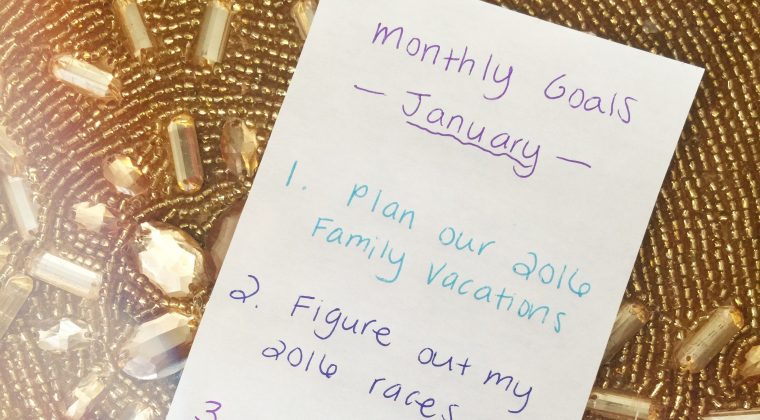 monthly Goals
- January -
1. Plan our 2016
Family Vacations
2. Figure out my
2016 races
3.